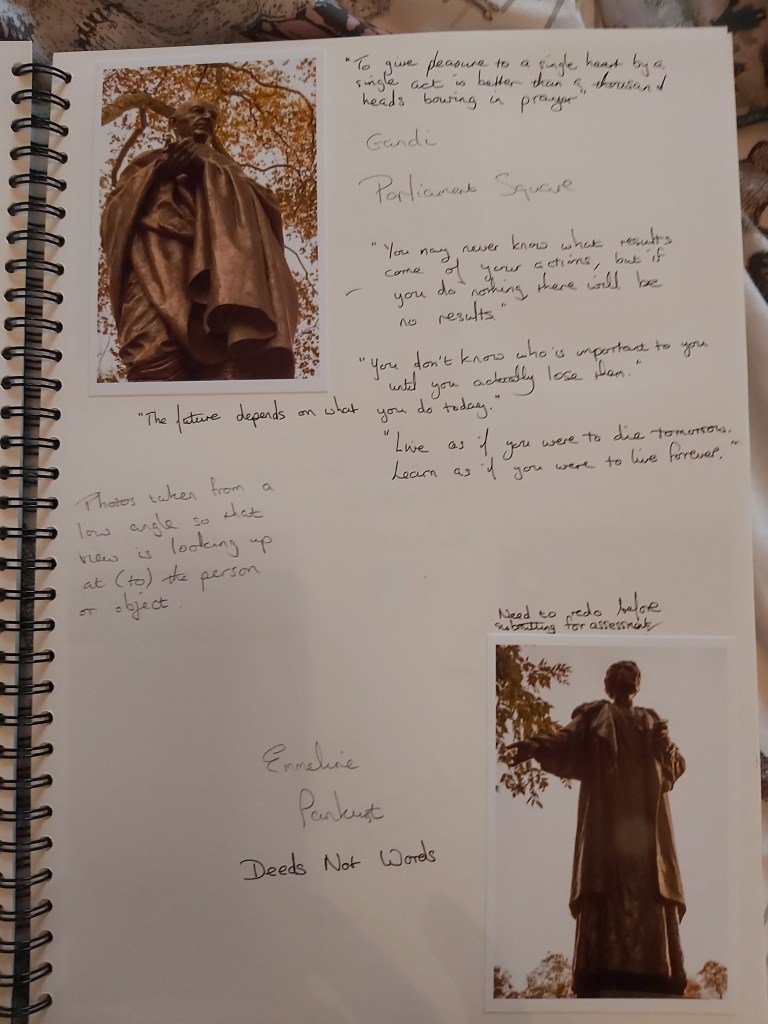 "To give pleasure to a single heart by a
single act is better than a thousand
heads bowing in prayer"
Gandi
Parliament Square
"You may never know what results
come of your actions, but if
you do nothing there will be
no results."
"You don't know who is important to you
until you actually lose them."
"The future depends on what you do today."
"Live as if you were to die tomorrow.
Learn as if you were to live forever."
Photos taken from a
low angle so that
view is looking up
at (to) the person
or object.
Need to redo before
submitting for assessment
Emmeline
Pankust
Deeds Not Words